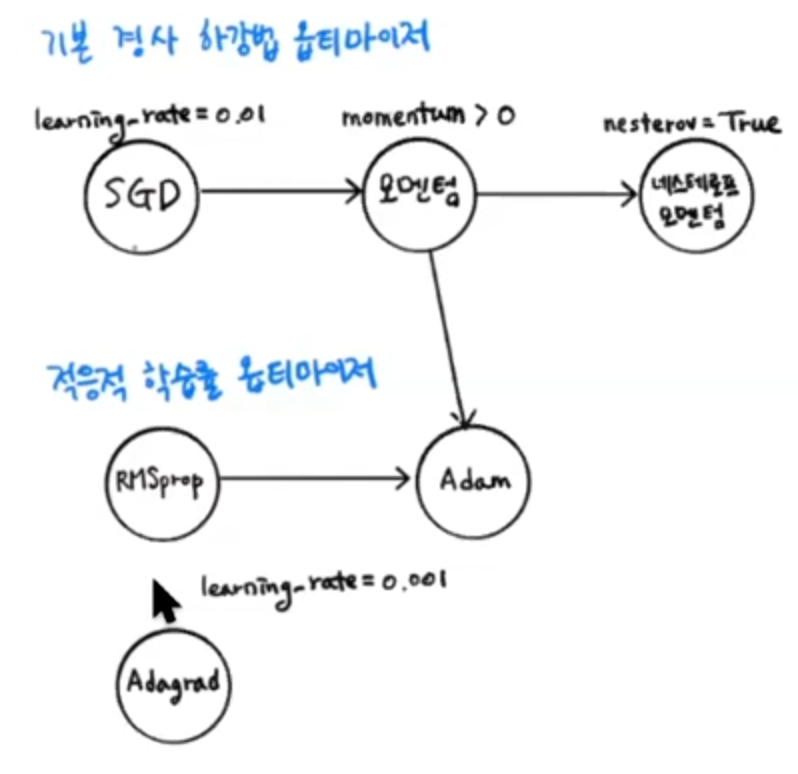 기본 경사 하강법 옵티마이저
learning_rate = 0.01
momentum > 0
nesterov = True
SGD
모멘텀
네스테로프
모멘텀
적응적 학습률 옵티마이저
RMSprop
Adam
learning_rate = 0.001
Adagrad